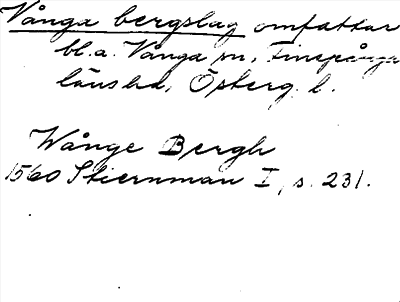 Vånga bergslag omfattar
bl.a. Vånga sn, Finspånga
länshd, Österg. l.
Wånge Bergh
1560 Stiernman I, s. 231.